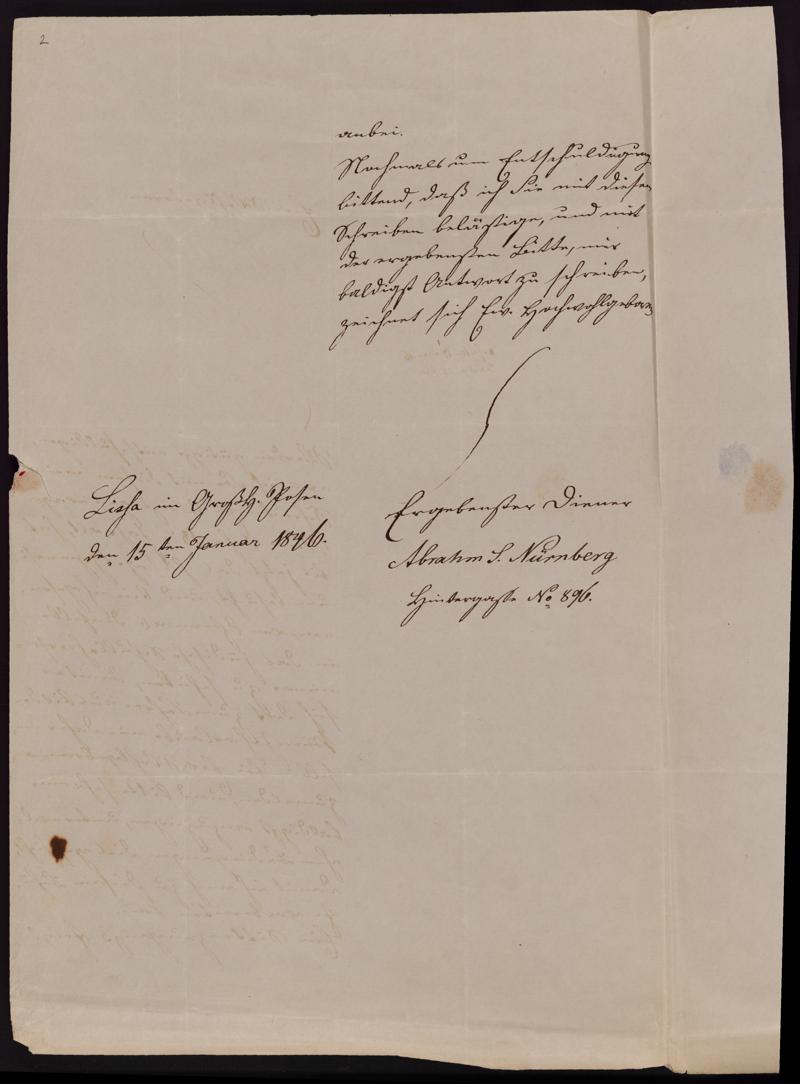 2
anbei.
Nochmals um Entschuldigung
bittend, daß ich Sie mit diesen
Schreiben belästige, und mit
der ergebensten Bitte, mir
baldigst Antwort zu schreiben,
zeichnet sich Ew. Hochwohlgebor
Lissa im Großh. Posen
den 15ten Januar 1846.
Ergebenster Diener
Abrahm S. Nürnberg
Hintergasse No 896.